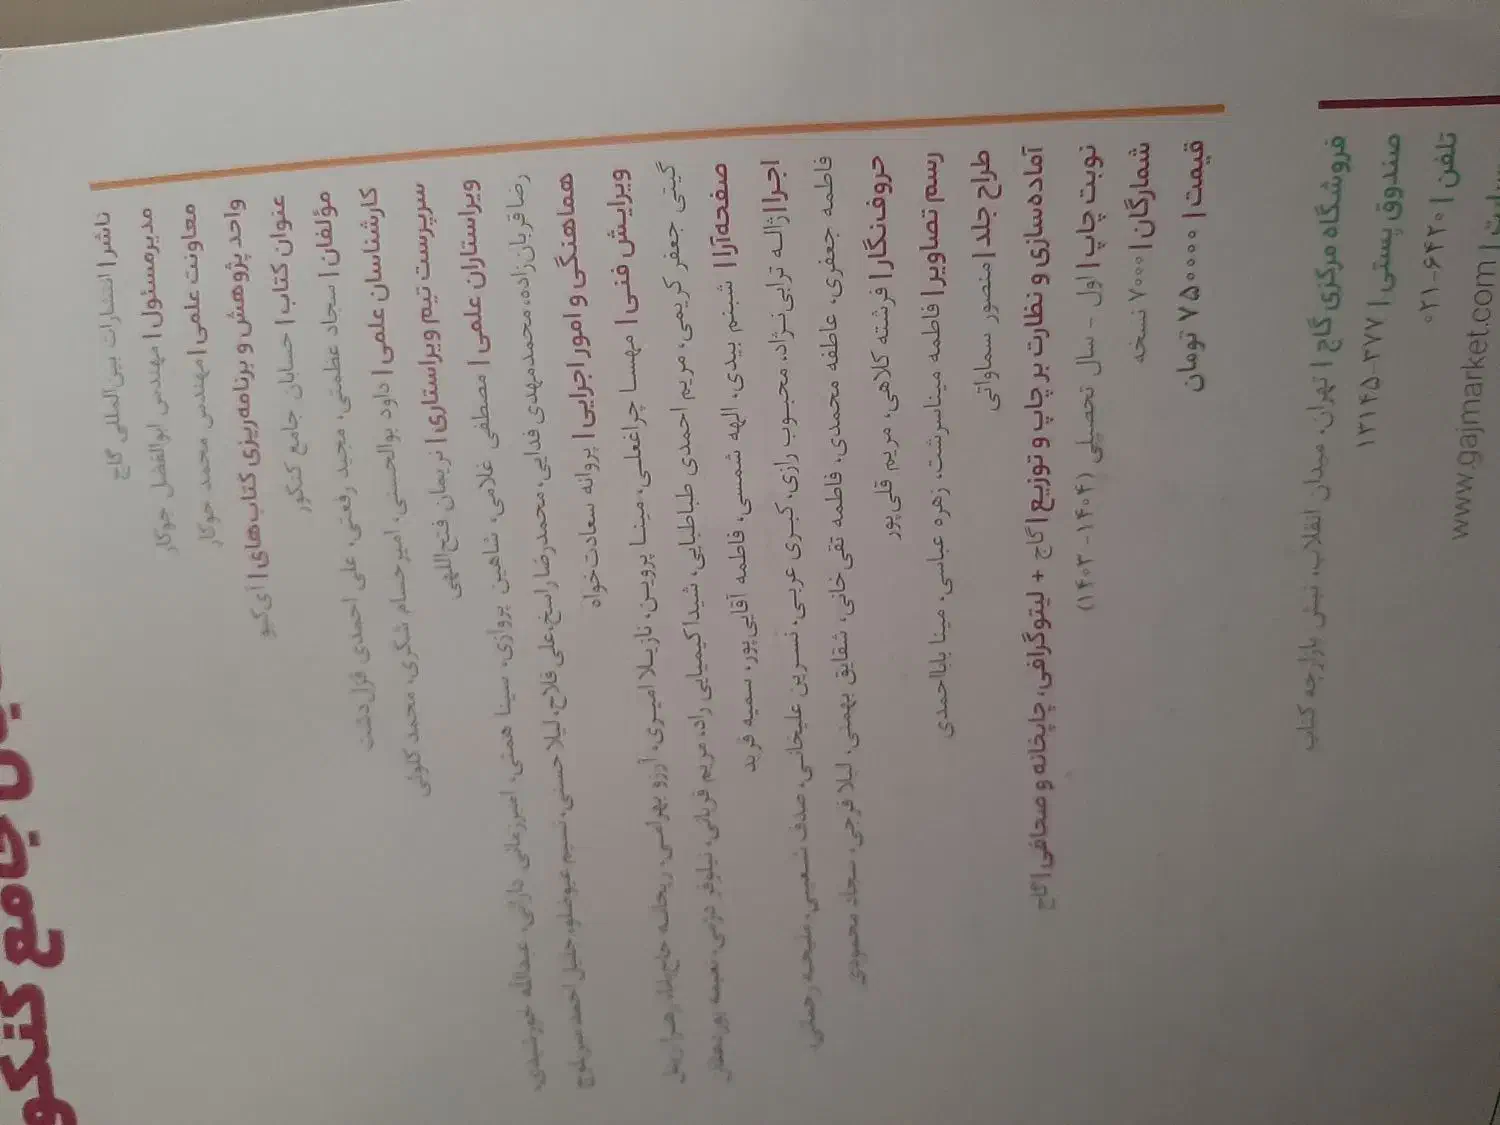 جامع کنکو
ناشر | انتشارات بین‌المللی گاج
مدیرمسئول | مهندس ابوالفضل جوکار
معاونت علمی | مهندس محمد جوکار
واحد پژوهش و برنامه‌ریزی کتاب‌های | آی‌کیو
عنوان کتاب | حسابان جامع کنکور
مؤلفان | سجاد عظمتی، مجید رفعتی، علی احمدی قزل‌دشت
کارشناسان علمی | داود بوالحسنی، امیرحسام شکری، محمد کلوئی
سرپرست تیم ویراستاری | نریمان فتح‌اللهی
ویراستاران علمی | مصطفی غلامی، شاهین پروازی، سینا همتی، امیرزمانی دارانی، عبدالله خورشیدی،
رضا قربان‌زاده، محمدمهدی فدایی، محمدرضا راسخ، علی فلاح، لیلا حسنی، نسیم
هماهنگی و امور اجرایی | پروانه سعادت‌خواه
ویرایش فنی | مهسا چراغعلی، مینا پروین، نازیلا امیری، آرزو بهرامی، ریحانه
گیتی جعفر کریمی، مریم احمدی طباطبایی، شیدا کیمیایی راد، مریم قربانی، نیلوفر
صفحه‌آرا | شبنم بیدی، الهه شمسی، فاطمه آقایی‌پور، سمیه فرید
اجرا | ژاله ترابی‌نژاد، محبوب رازی، کبری عربی، نسرین علیخانی، صدف شعیبی، ملیحه رحمتی،
فاطمه جعفری، عاطفه محمدی، فاطمه تقی خانی، شقایق بهمنی، لیلا فرجی، سجاد محمودی
حروف‌نگار | فرشته کلاهی، مریم قلی‌پور
رسم تصاویر | فاطمه میناسرشت، زهره عباسی، مینا بابااحمدی
طراح جلد | منصور سماواتی
آماده‌سازی و نظارت بر چاپ و توزیع | گاج + لیتوگرافی، چاپخانه و صحافی | گاج
نوبت چاپ | اول - سال تحصیلی (۱۴۰۴ - ۱۴۰۳)
شمارگان | ۷۰۰۰ نسخه
قیمت | ۷۵۰۰۰۰ تومان
فروشگاه مرکزی گاج | تهران، میدان انقلاب، نبش بازارچه کتاب
صندوق پستی | ۳۷۷-۱۳۱۴۵
تلفن | ۰۲۱-۶۴۲۰
www.gajmarket.com |